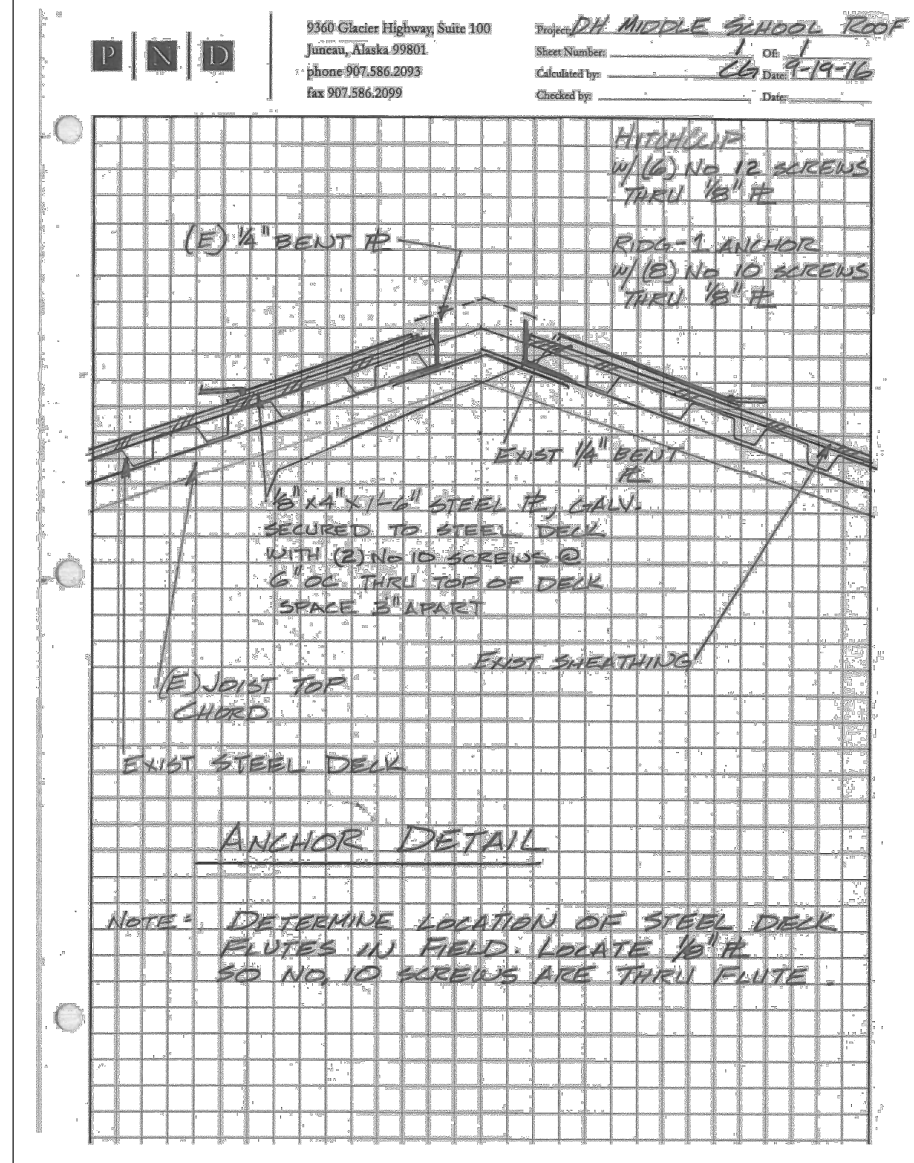 P N D
9360 Glacier Highway, Suite 100
Juneau, Alaska 99801
phone 907.586.2093
fax 907.586.2099
Project: DH MIDDLE SCHOOL ROOF
Sheet Number: 1 Of: 1
Calculated by: CG Date: 9-19-16
Checked by: Date:
HITCHCLIP
W/(6) NO 12 SCREWS
THRU 1/8" PL
RIDG-1 ANCHOR
W/(8) NO 10 SCREWS
THRU 1/8" PL
(E) 1/4" BENT PL
EXIST 1/4" BENT
PL
1/8" X 4" X 1'-6" STEEL PL, GALV.
SECURED TO STEEL DECK
WITH (2) NO 10 SCREWS @
6" OC THRU TOP OF DECK
SPACE 3" APART
EXIST SHEATHING
(E) JOIST TOP
CHORD
EXIST STEEL DECK
ANCHOR DETAIL
NOTE: DETERMINE LOCATION OF STEEL DECK
FLUTES IN FIELD. LOCATE 1/8" PL
SO NO. 10 SCREWS ARE THRU FLUTE.